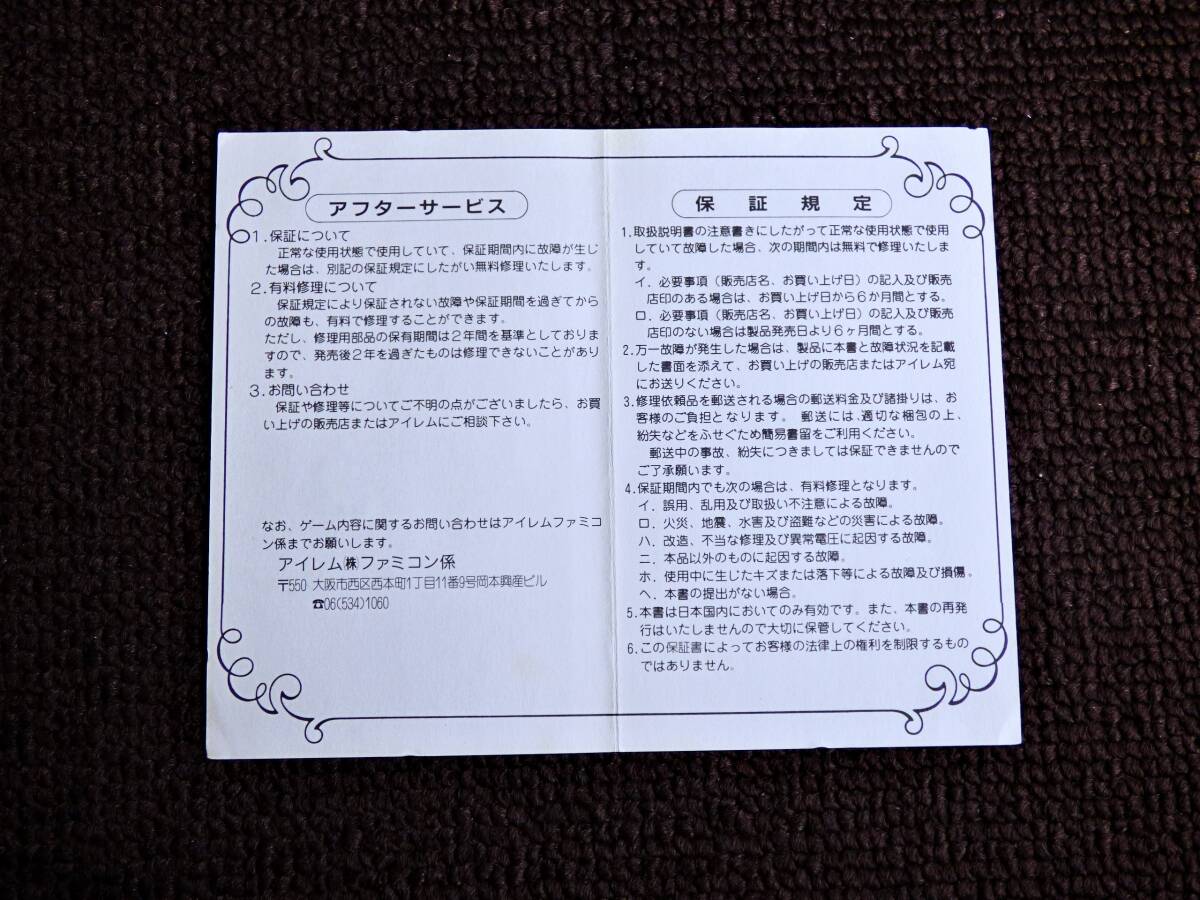 アフターサービス
1.保証について
正常な使用状態で使用していて、保証期間内に故障が生じ
た場合は、別記の保証規定にしたがい無料修理いたします。
2.有料修理について
保証規定により保証されない故障や保証期間を過ぎてから
の故障も、有料で修理することができます。
ただし、修理用部品の保有期間は2年間を基準としておりま
すので、発売後2年を過ぎたものは修理できないことがあり
ます。
3.お問い合わせ
保証や修理等についてご不明の点がございましたら、お買
い上げの販売店またはアイレムにご相談下さい。
なお、ゲーム内容に関するお問い合わせはアイレムファミコ
ン係までお願いします。
アイレム㈱ファミコン係
〒550 大阪市西区西本町1丁目11番9号岡本興産ビル
☎06(534)1060
保証規定
1.取扱説明書の注意書きにしたがって正常な使用状態で使用
していて故障した場合、次の期間内は無料で修理いたしま
す。
イ．必要事項（販売店名、お買い上げ日）の記入及び販売
店印のある場合は、お買い上げ日から6か月間とする。
ロ．必要事項（販売店名、お買い上げ日）の記入及び販売
店印のない場合は製品発売日より6ヶ月間とする。
2.万一故障が発生した場合は、製品に本書と故障状況を記載
した書面を添えて、お買い上げの販売店またはアイレム宛
にお送りください。
3.修理依頼品を郵送される場合の郵送料金及び諸掛りは、お
客様のご負担となります。 郵送には、適切な梱包の上、
紛失などをふせぐため簡易書留をご利用ください。
郵送中の事故、紛失につきましては保証できませんので
ご了承願います。
4.保証期間内でも次の場合は、有料修理となります。
イ．誤用、乱用及び取扱い不注意による故障。
ロ．火災、地震、水害及び盗難などの災害による故障。
ハ．改造、不当な修理及び異常電圧に起因する故障。
ニ．本品以外のものに起因する故障。
ホ．使用中に生じたキズまたは落下等による故障及び損傷。
ヘ．本書の提出がない場合。
5.本書は日本国内においてのみ有効です。また、本書の再発
行はいたしませんので大切に保管してください。
6.この保証書によってお客様の法律上の権利を制限するもの
ではありません。